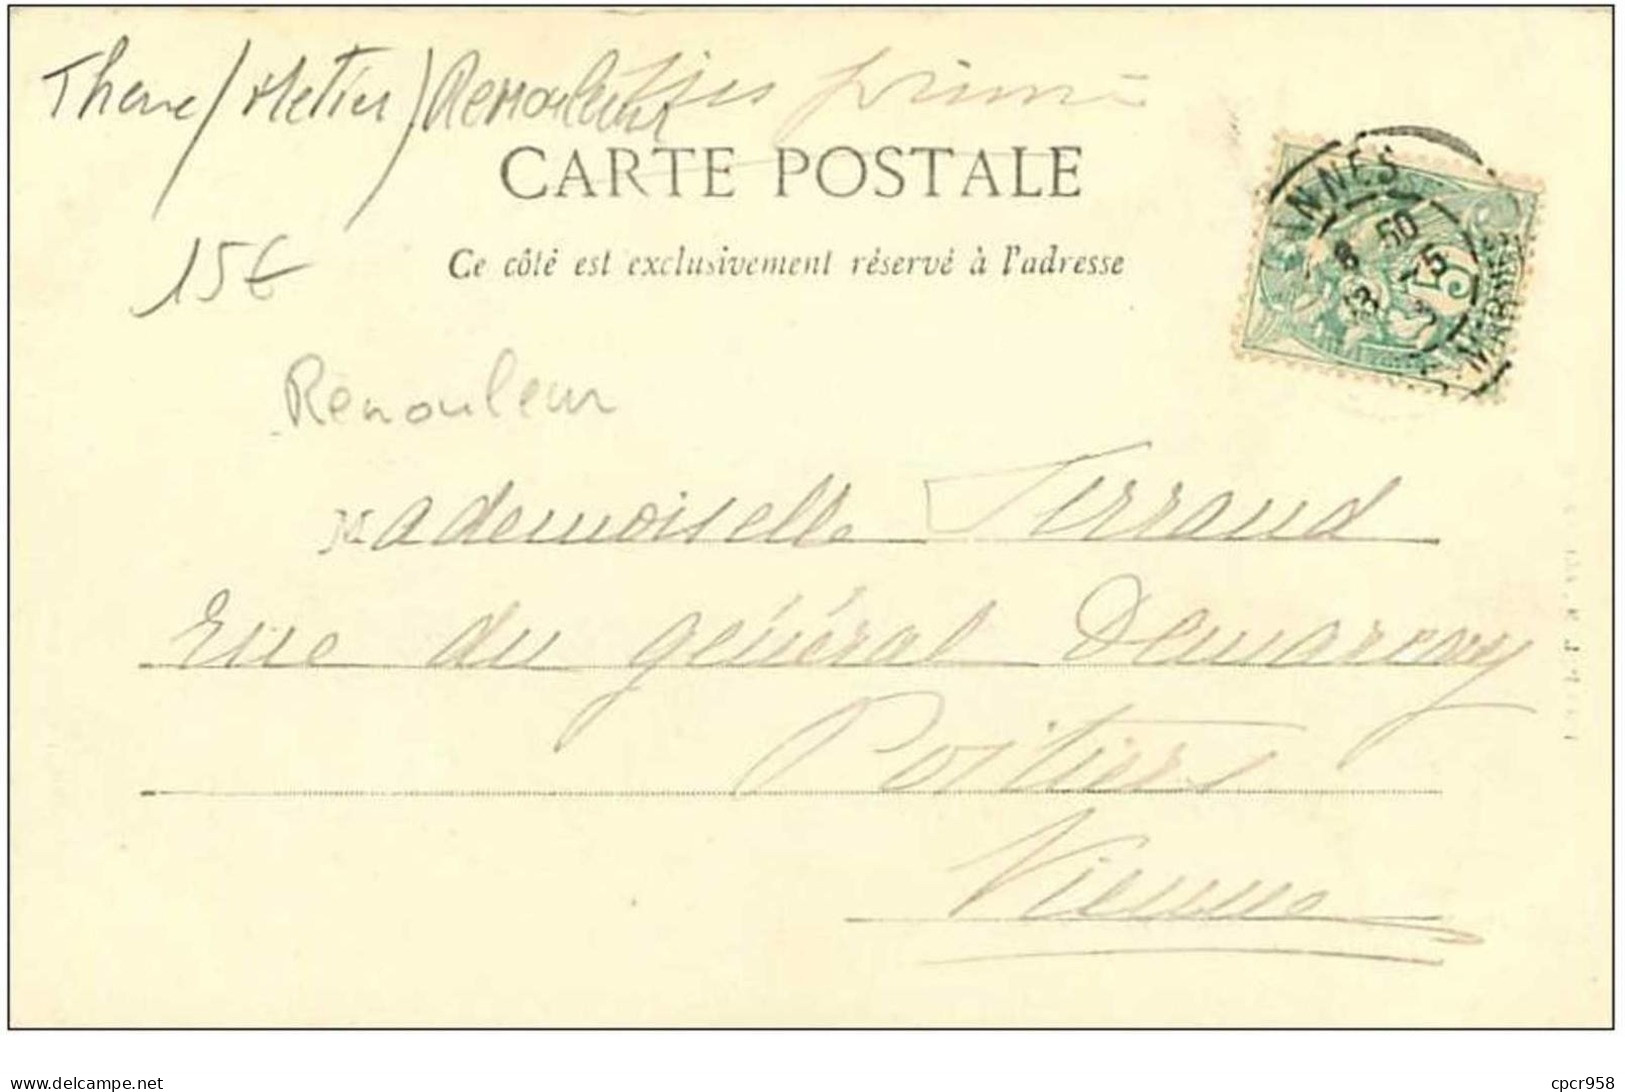 Theme / Metier / Remouleur
CARTE POSTALE
Ce côté est exclusivement réservé à l'adresse
15€
NNES
6 50
13 -5
5
Remouleur
Mademoiselle Ferraud
Rue du général Demarcay
Poitiers
Vienne
delcampe.net
cpcr958